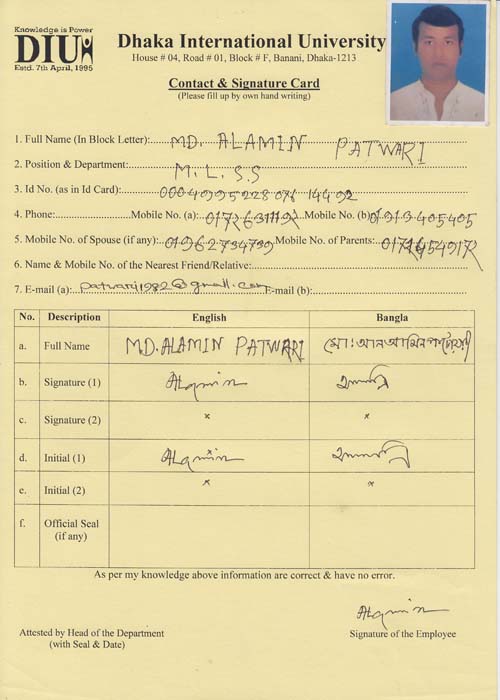 Knowledge is Power
DIU
Estd. 7th April, 1995
Dhaka International University
House # 04, Road # 01, Block # F, Banani, Dhaka-1213
Contact & Signature Card
(Please fill up by own hand writing)
1. Full Name (In Block Letter): MD. ALAMIN PATWARI
2. Position & Department: M.L.S.S
3. Id No. (as in Id Card):
4. Phone: Mobile No. (a): Mobile No. (b)
5. Mobile No. of Spouse (if any): Mobile No. of Parents:
6. Name & Mobile No. of the Nearest Friend/Relative:
7. E-mail (a): patwari1982@gmail.com E-mail (b):
No. Description English Bangla
a. Full Name MD. ALAMIN PATWARI মো: আল আমিন
b. Signature (1) Alamin
c. Signature (2) x x
d. Initial (1) Alamin
e. Initial (2) x x
f. Official Seal
(if any)
As per my knowledge above information are correct & have no error.
Alamin
Attested by Head of the Department Signature of the Employee
(with Seal & Date)